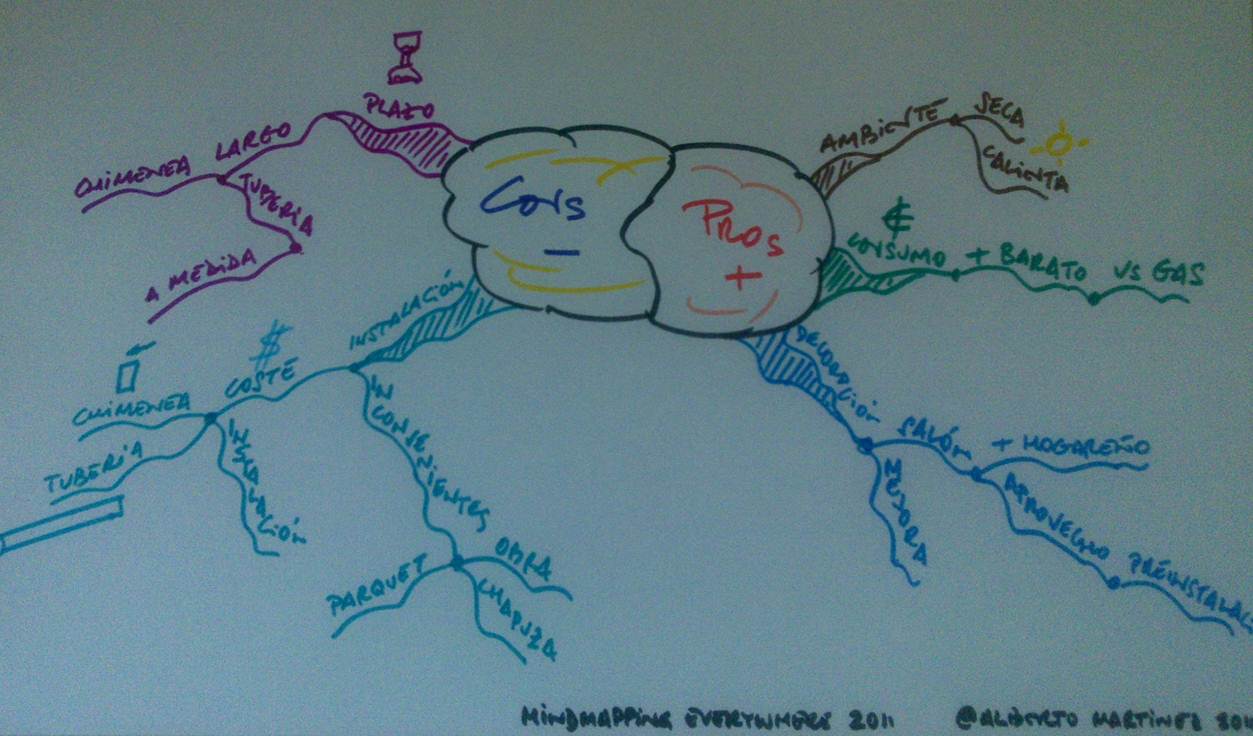 Cons
-
PLAZO
LARGO
CHIMENEA
TUBERIA
A MEDIDA
INSTALACIÓN
$
COSTE
CHIMENEA
TUBERIA
INSTALACIÓN
INCONSENIENTES
OBRA
CHAPUZA
PARQUET
PROS
+
AMBIENTE
SECA
CALIENTA
CONSUMO
+ BARATO
VS GAS
DECORACIÓN
SALÓN
+ HOGAREÑO
APROVECHO
PREINSTALAC
MEJORA
MINDMAPPING EVERYWHERE 2011
@ALBERTO MARTINEZ